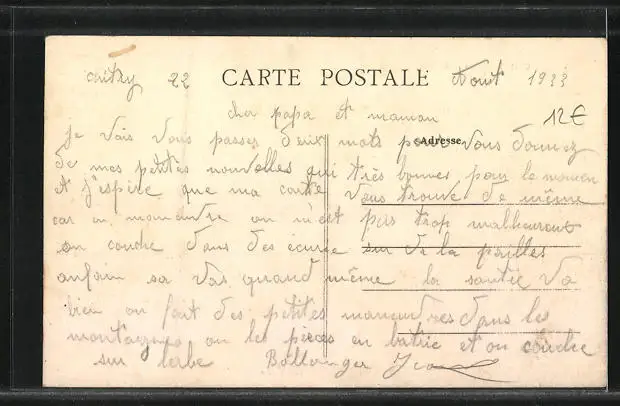 22 CARTE POSTALE Aout 1933
12€
cher papa et maman
Adresse
je vais vous passer deux mots pour vous donnez
de mes petites nouvelles qui très bonnes pour le momen
et j'espère que ma carte vous trouve de même
car on manoeuvre on n'est pas trop malheureut
on couche dans des écurie sur de la pailles
anfain sa vas quand même la santée va
bien on fait des petites maneuvres dans les
montagnes on les pièces en batrie et on couche
sur lerbe Bollenger